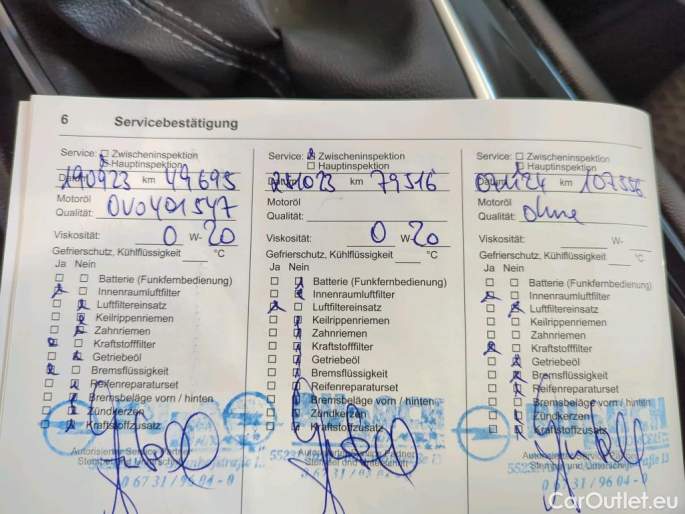 6 Servicebestätigung
Service: Zwischeninspektion
Hauptinspektion
Datum 190923 km 49695
Motoröl
Qualität: OVO401547
Viskosität: 0 W-20
Gefrierschutz, Kühlflüssigkeit °C
Ja Nein
Batterie (Funkfernbedienung)
Innenraumluftfilter
Luftfiltereinsatz
Keilrippenriemen
Zahnriemen
Kraftstofffilter
Getriebeöl
Bremsflüssigkeit
Reifenreparaturset
Bremsbeläge vorn / hinten
Zündkerzen
Kraftstoffzusatz
Autorisierter Service Partner
Stempel und Unterschrift
0 67 31 / 96 04 - 0
Service: Zwischeninspektion
Hauptinspektion
Datum km 79516
Motoröl
Qualität:
Viskosität: 0 W-20
Gefrierschutz, Kühlflüssigkeit °C
Ja Nein
Batterie (Funkfernbedienung)
Innenraumluftfilter
Luftfiltereinsatz
Keilrippenriemen
Zahnriemen
Kraftstofffilter
Getriebeöl
Bremsflüssigkeit
Reifenreparaturset
Bremsbeläge vorn / hinten
Zündkerzen
Kraftstoffzusatz
Stempel und Unterschrift
0 67 31 / 96 04 - 0
Service: Zwischeninspektion
Hauptinspektion
Datum km 107556
Motoröl
Qualität: ohne
Viskosität: W-
Gefrierschutz, Kühlflüssigkeit °C
Ja Nein
Batterie (Funkfernbedienung)
Innenraumluftfilter
Luftfiltereinsatz
Keilrippenriemen
Zahnriemen
Kraftstofffilter
Getriebeöl
Bremsflüssigkeit
Reifenreparaturset
Bremsbeläge vorn / hinten
Zündkerzen
Kraftstoffzusatz
Stempel und Unterschrift
0 67 31 / 96 04 - 0
CarOutlet.eu